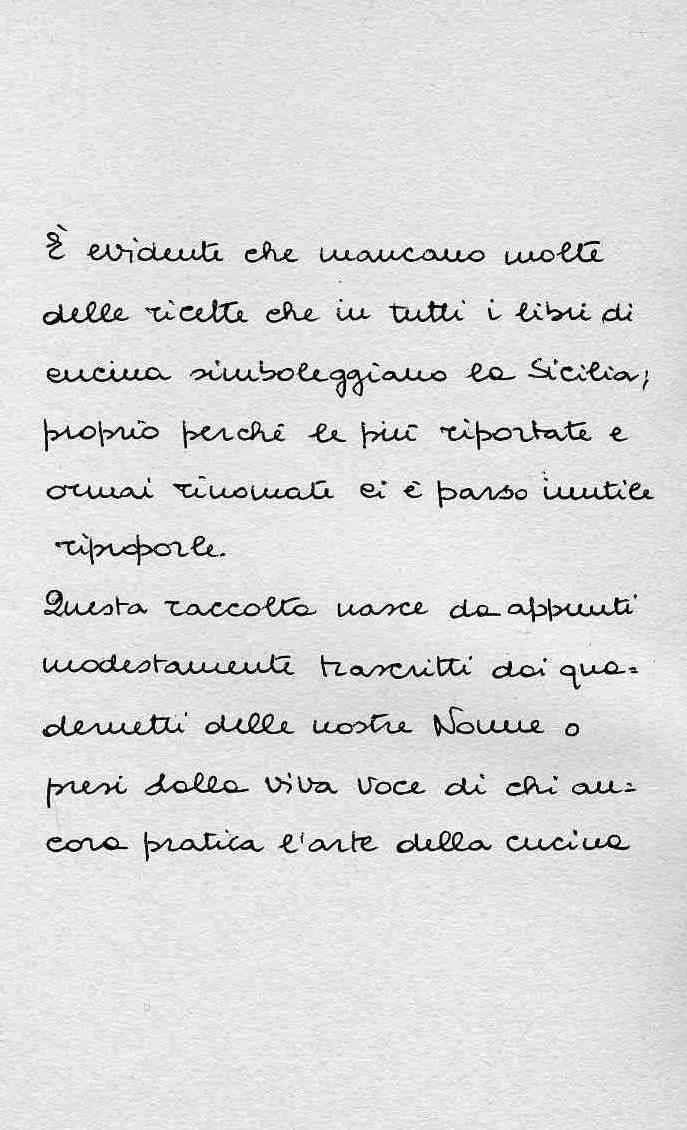 È evidente che mancano molte
delle ricette che in tutti i libri di
cucina simboleggiano la Sicilia;
proprio perché le più riportate e
ormai rinomate ci è parso inutile
riproporle.
Questa raccolta nasce da appunti
modestamente trascritti dai qua=
dernetti delle nostre Nonne o
presi dalla viva voce di chi an=
cora pratica l'arte della cucina